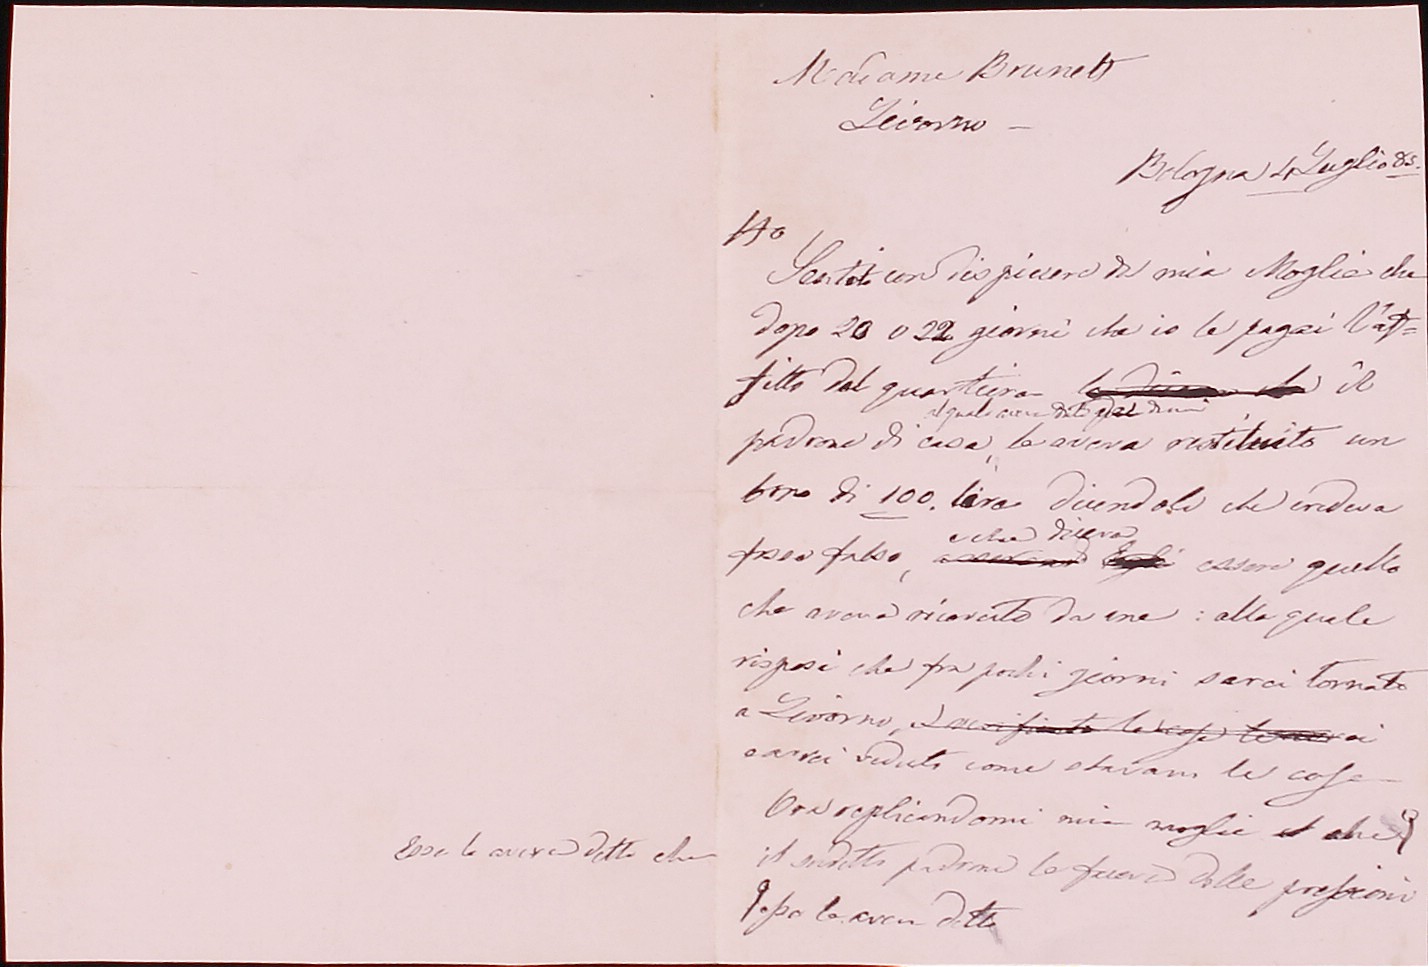 Madame Brunett
Livorno –
Bologna 4 Luglio 85.
Ho
Sentito con dispiacere da mia Moglie che
dopo 20 o 22 giorni che io le pagai l'af=
fitto del quartiere il
al quale aveva dati
padrone di casa, le aveva restituito un
bono di 100. lire dicendole che credeva
fosse falso, essere quello
e che diceva
che aveva ricevuto da me : alla quale
risposi che fra pochi giorni sarei tornato
a Livorno, e le cose
e avrei veduto come stavano le cose –
Ora replicandomi mia moglie che
il sudetto padrone le faceva delle pressioni
essa le aveva detto
Essa le aveva detto che